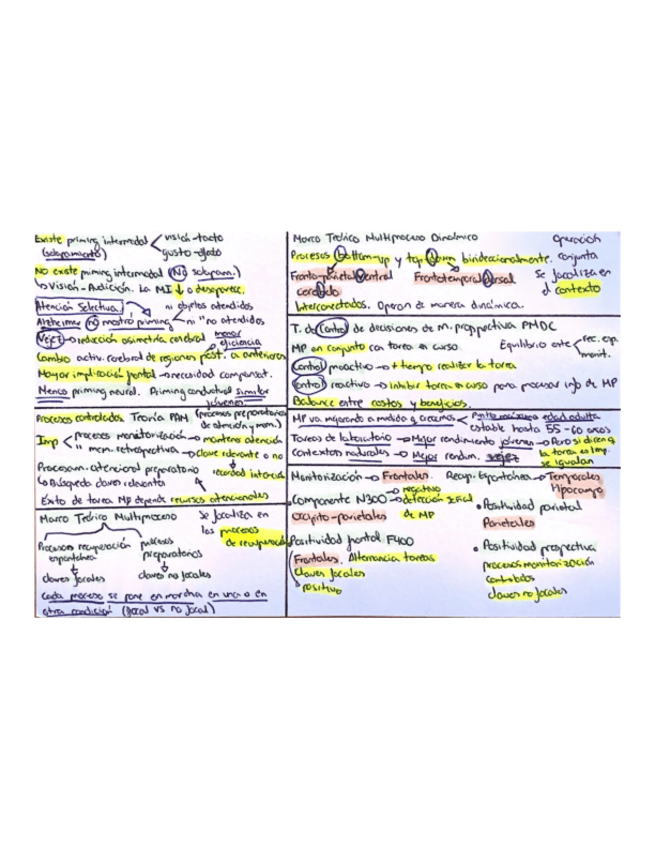 Existe priming intermodal < visión-tacto
(solapamiento) gusto-olfato
No existe priming intermodal (No solapam.)
↳ Visión-Audición. La MI ↓ o desaparece.
Atención Selectiva. ni objetos atendidos
Alzheimer no mostró priming < ni "no atendidos
Vejez → reducción asimetría cerebral menor eficiencia
Cambio activ. cerebral de regiones post. a anteriores
Mayor implicación frontal → necesidad compensat.
Menos priming neural. Priming conductual similar jóvenes.
Procesos controlados. Teoría PAM (procesos preparatorios de atención y mem.)
Imp < procesos monitorización → mantener atención
" mem. retrospectiva → clave relevante o no
↓ recordad intención
Procesam. atencional preparatorio
↳ Búsqueda claves relevantes
Éxito de tarea MP depende recursos atencionales
Marco Teórico Multiproceso se localiza en
los procesos de recuperación
Procesos recuperación espontánea
procesos preparatorios
claves focales claves no focales
Cada proceso se pone en marcha en una o en
otra condición (focal vs no focal)
Marco Teórico Multiproceso Dinámico Operación
Procesos bottom-up y top down bidireccionalmente. conjunta
Fronto-parietal ventral Frontotemporal dorsal se focaliza en
el contexto
Interconectados. Operan de manera dinámica.
T. de Control de decisiones de m. prospectiva PMDC
MP en conjunto con tarea en curso. Equilibrio entre < rec. esp.
monit.
Control proactivo → + tiempo realizar la tarea
Control reactivo → inhibir tarea en curso para procesar info de MP
Balance entre costos y beneficios.
MP va mejorando a medida q crecemos < Punto máximo edad adulta
estable hasta 55-60 años
Tareas de laboratorio → Mejor rendimiento jóvenes → Pero si dicen q
la tarea es imp. se igualan
Contextos naturales → Mejor rendim. vejez
Monitorización → Frontales. Recup. Espontánea → Temporales
Hipocampo
• Componente N300 → negativo → detección señal
de MP
occipito-parietales
• Positividad parietal
Parietales
Positividad frontal F400
Frontales. Alternancia tareas
Claves focales
positivo
• Positividad prospectiva
procesos monitorización
controlados
claves no focales